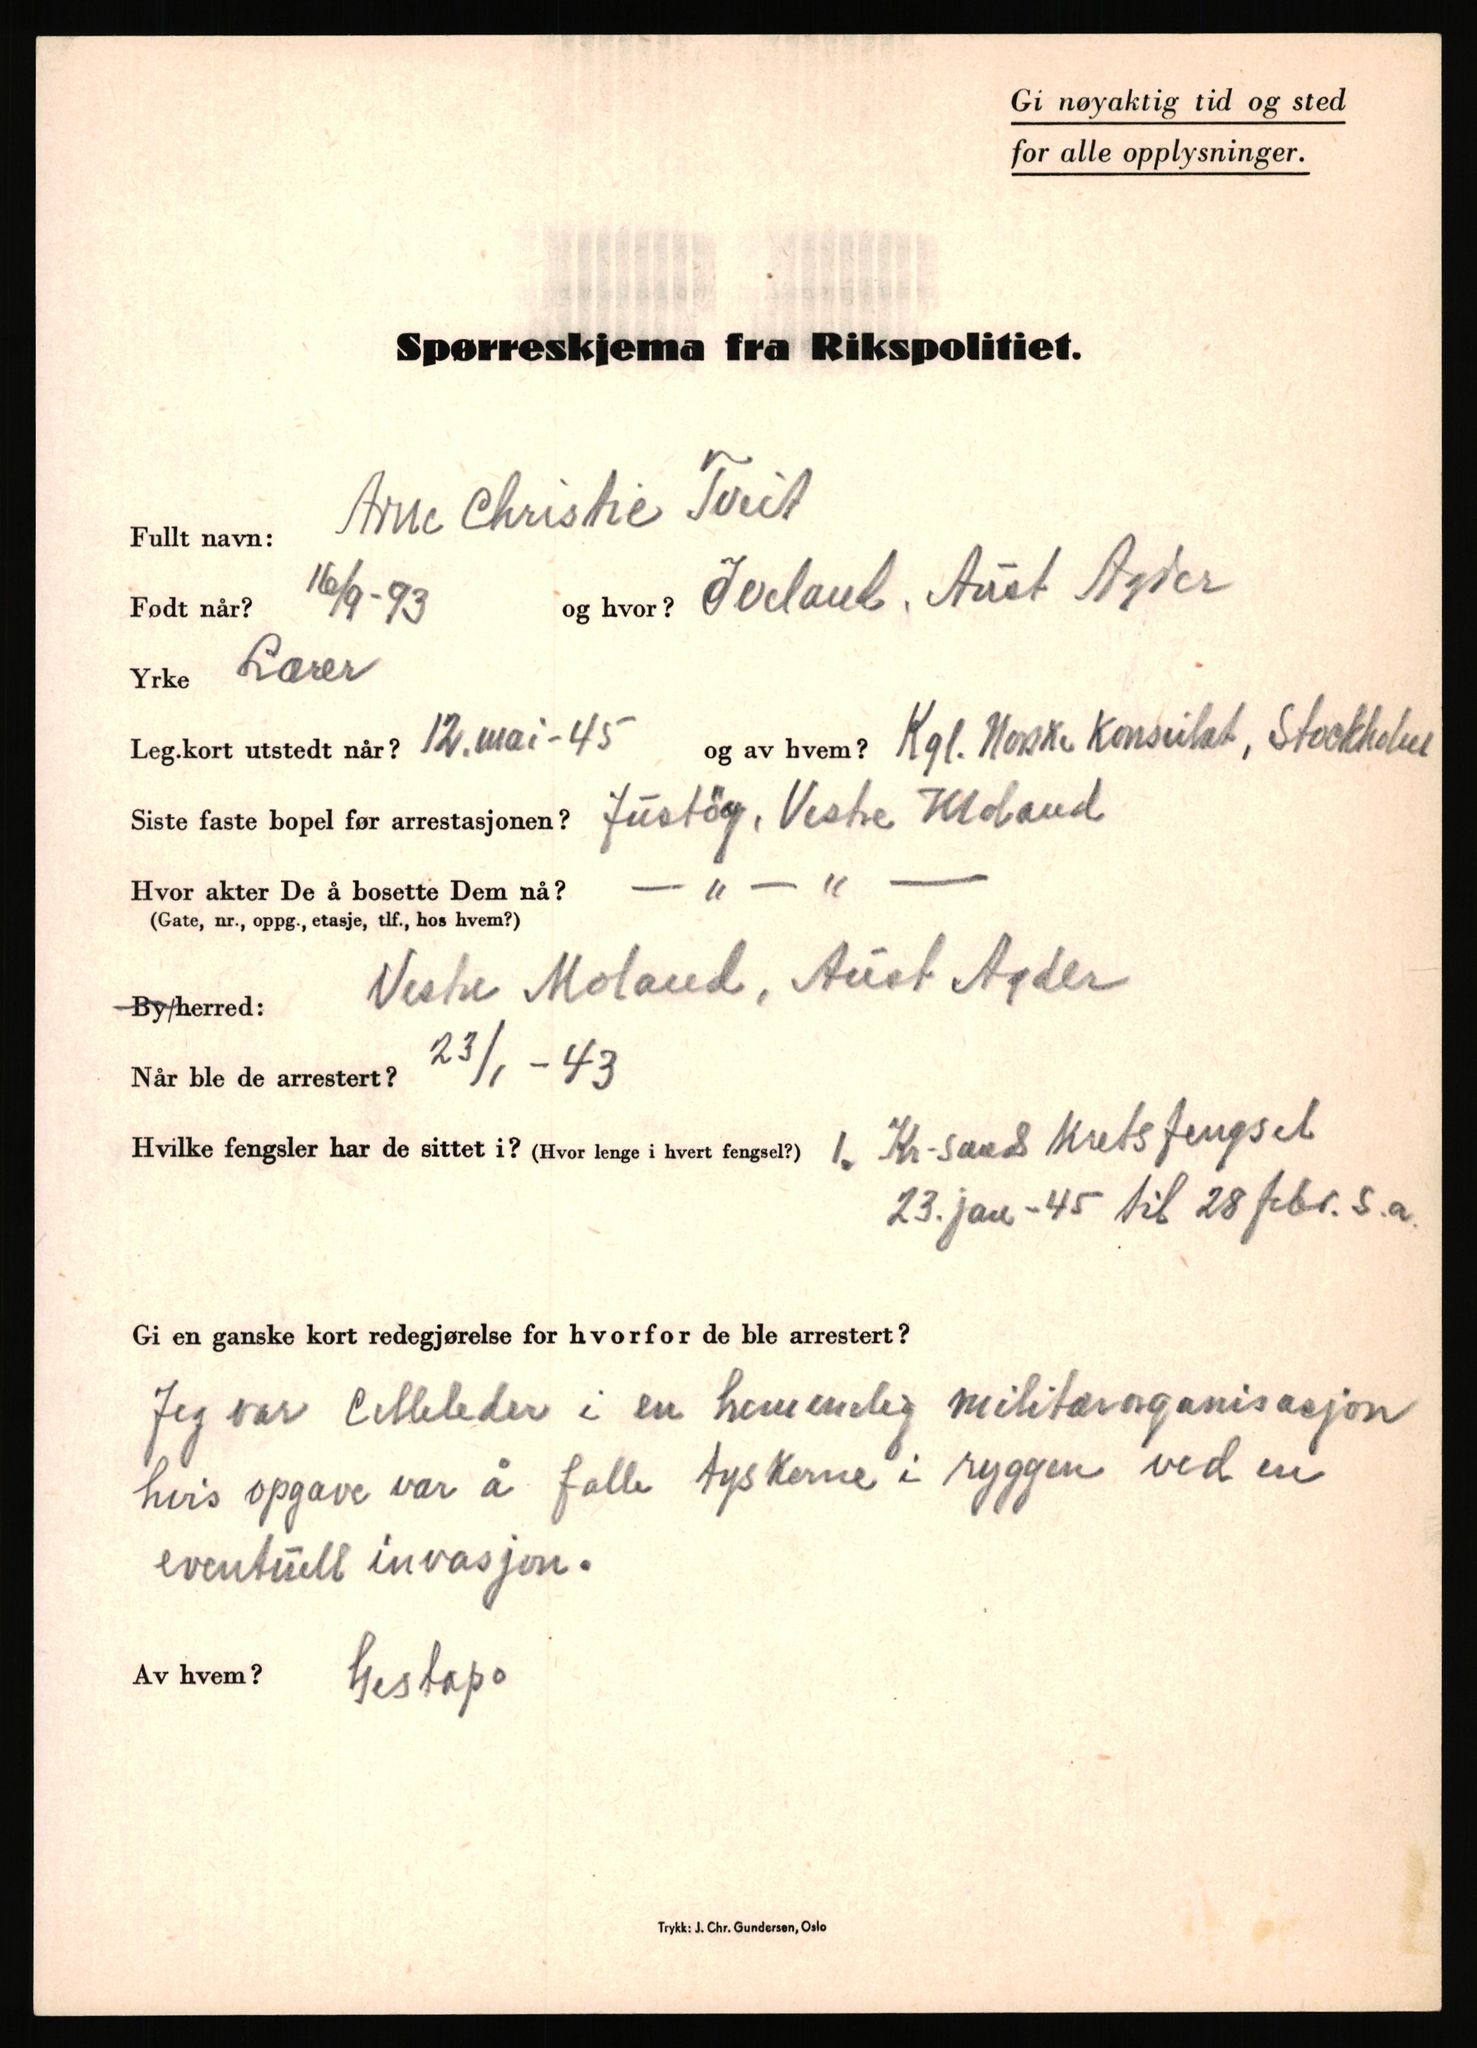 Gi nøyaktig tid og sted
for alle opplysninger.
Spørreskjema fra Rikspolitiet.
Fullt navn: Arne Christie Tveit
Født når? 16/9-93 og hvor? Iveland, Aust Agder
Yrke Lærer
Leg.kort utstedt når? 12. mai-45 og av hvem? Kgl. Norske Konsulat, Stockholm
Siste faste bopel før arrestasjonen? Justøy, Vestre Moland
Hvor akter De å bosette Dem nå? — " — " —
(Gate, nr., oppg., etasje, tlf., hos hvem?)
By/herred: Vestre Moland, Aust Agder
Når ble de arrestert? 23/1-43
Hvilke fengsler har de sittet i? (Hvor lenge i hvert fengsel?) 1. Kr-sand Kretsfengsel
23. jan-45 til 28 febr. s.a.
Gi en ganske kort redegjørelse for hvorfor de ble arrestert?
Jeg var celleleder i en hemmelig militærorganisasjon
hvis opgave var å falle tyskerne i ryggen ved en
eventuell invasjon.
Av hvem? Gestapo
Trykk: J. Chr. Gundersen, Oslo